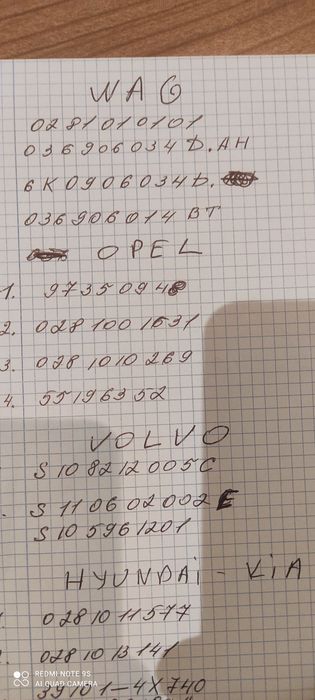 WAG
0281010101
036906034D.AH
6K0906034D.
036906014 BT
OPEL
1. 97350948
2. 0281001631
3. 0281010269
4. 55196352
VOLVO
S108212005C
S110602002E
S105961201
HYUNDAi - KiA
0281011577
2. 0281013141
39101-4X740
REDMI NOTE 9S
AI QUAD CAMERA